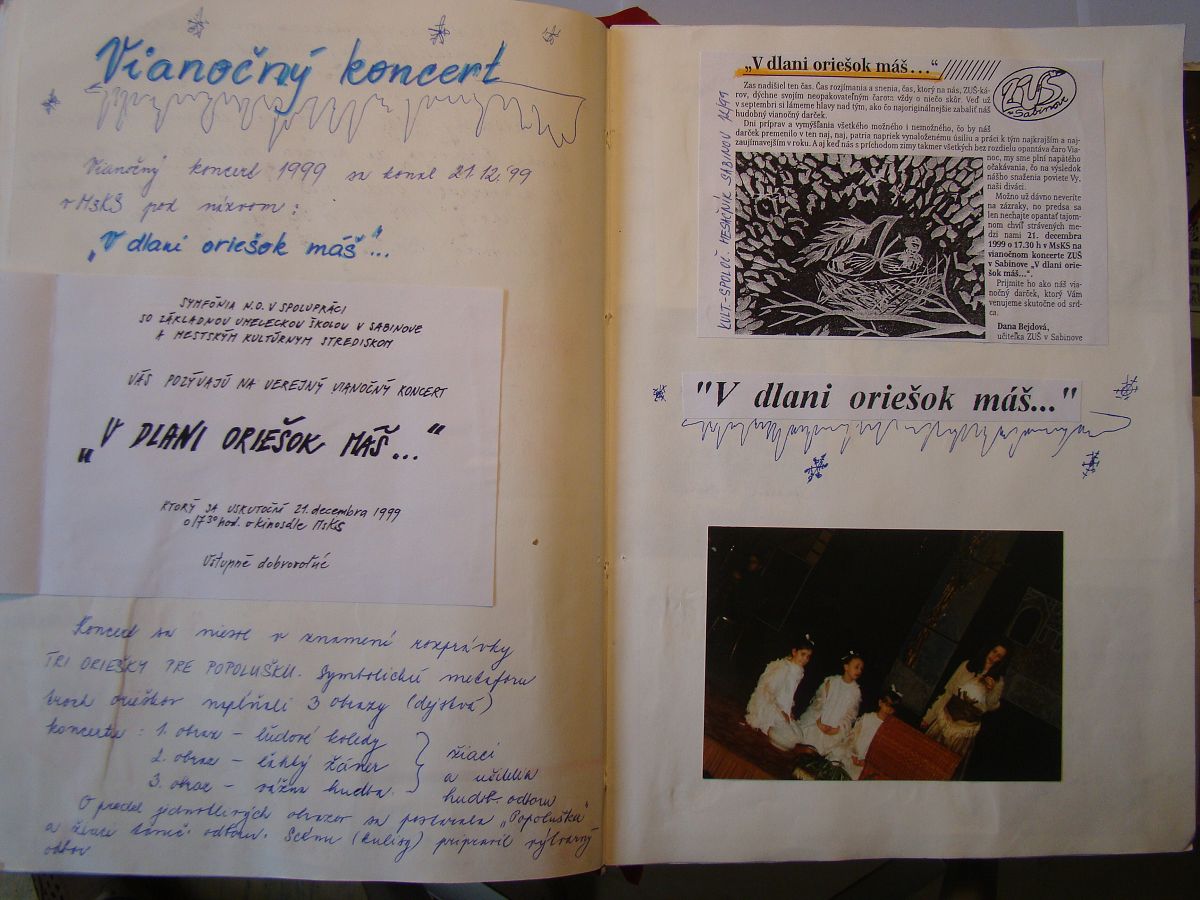 Vianočný koncert
Vianočný koncert 1999 sa konal 21.12.'99
v MsKS pod názvom:
„V dlani oriešok máš"...
SYMFÓNIA N.O. V SPOLUPRÁCI
SO ZÁKLADNOU UMELECKOU ŠKOLOU V SABINOVE
A MESTSKÝM KULTÚRNYM STREDISKOM
VÁS POZÝVAJÚ NA VEREJNÝ VIANOČNÝ KONCERT
„V DLANI ORIEŠOK MÁŠ..."
KTORÝ SA USKUTOČNÍ 21. decembra 1999
o 17³⁰ hod. v kinosále MsKS
Vstupné dobrovoľné
Koncert sa niesol v znamení rozprávky
TRI ORIEŠKY PRE POPOLUŠKU. Symbolickú metaforu
troch orieškov napĺňali 3 obrazy (dejstvá)
koncertu: 1. obraz – ľudové koledy
2. obraz – ľahký žáner
3. obraz – vážna hudba
žiaci
a učitelia
hudb. odboru
O predel jednotlivých obrazov sa postarala „Popoluška"
a žiaci taneč. odboru. Scénu (kulisy) pripravil výtvarný
odbor
„V dlani oriešok máš..."
ZUŠ
v Sabinove
Zas nadišiel ten čas. Čas rozjímania a snenia, čas, ktorý na nás, ZUŠ-ká-
rov, dýchne svojím neopakovateľným čarom vždy o niečo skôr. Veď už
v septembri si lámeme hlavy nad tým, ako čo najoriginálnejšie zabaliť náš
hudobný vianočný darček.
Dni príprav a vymýšľania všetkého možného i nemožného, čo by náš
darček premenilo v ten naj, naj, patria napriek vynaloženému úsiliu a práci k tým najkrajším a naj-
zaujímavejším v roku. A aj keď nás s príchodom zimy takmer všetkých bez rozdielu opantáva čaro Via-
noc, my sme plní napätého
očakávania, čo na výsledok
nášho snaženia poviete Vy,
naši diváci.
Možno už dávno neveríte
na zázraky, no predsa sa
len nechajte opantať tajom-
nom chvíľ strávených me-
dzi nami 21. decembra
1999 o 17.30 h v MsKS na
vianočnom koncerte ZUŠ
v Sabinove „V dlani orie-
šok máš...".
Prijmite ho ako náš via-
nočný darček, ktorý Vám
venujeme skutočne od srd-
ca.
Dana Bejdová,
učiteľka ZUŠ v Sabinove
KULT.-SPOLOČ. MESAČNÍK SABINOV 12/99
"V dlani oriešok máš..."